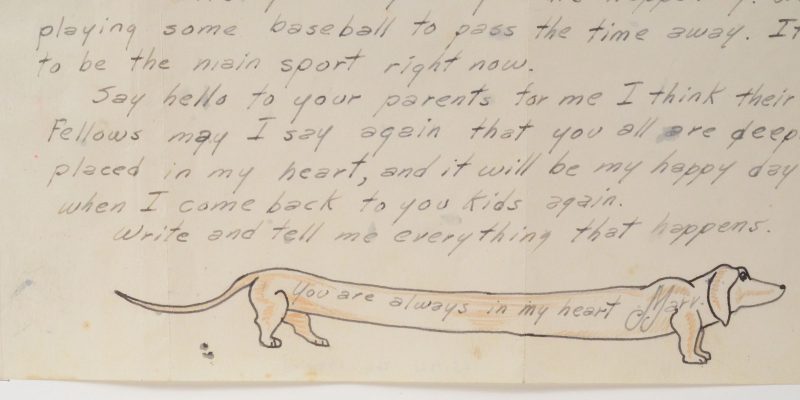 playing some baseball to pass the time away. It
to be the main sport right now.
Say hello to your parents for me I think their
Fellows may I say again that you all are deep
placed in my heart, and it will be my happy day
when I come back to you kids again.
Write and tell me everything that happens.
You are always in my heart Marv.